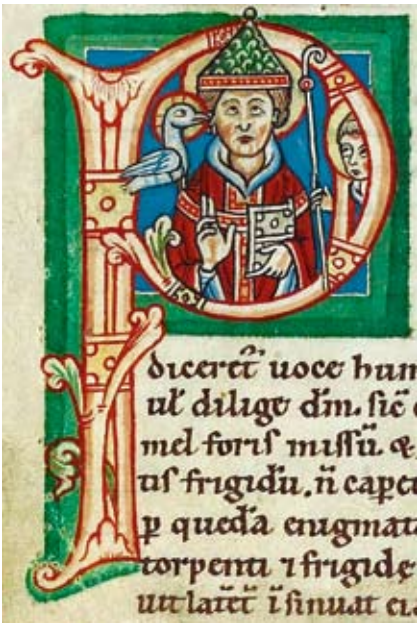 P
diceret̄ uoce hum
ul̄ dilige dm̄. sic̄ e
mel foris missū &
tis frigidū. n̄ capet
p quedā enigmata
torpenti ⁊ frigidę
ut latet̄ īsinuat ei.